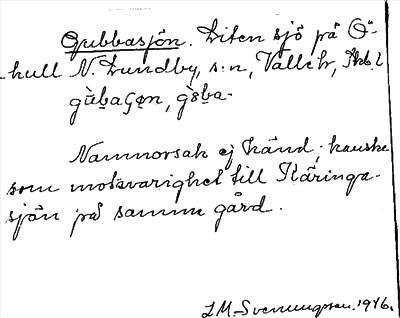 Gubbasjön. Liten sjö på Ö-
hult N. Lundby, s:n, Valle hr, Skb. l
gùbaʃøn, gùba-
Namnorsak ej känd; kanske
som motsvarighet till Käringa-
sjön på samma gård.
I.M. Svenungsson. 1946.